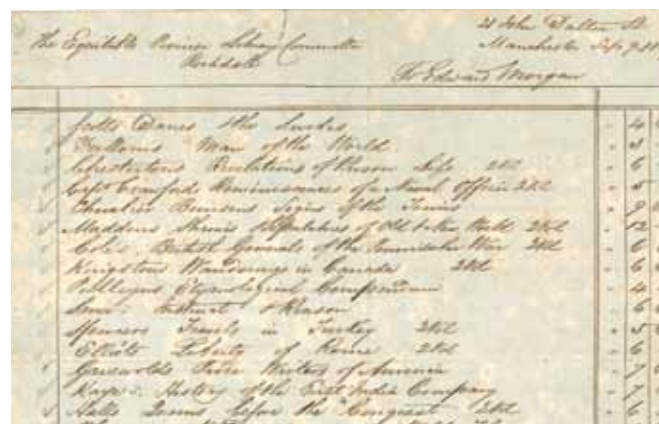 21 John Dalton St.
The Equitable Pioneers Library Committee
Manchester Sep 9
Rochdale
To Edward Morgan
Danes & the Swedes 4
Man of the World 3
Chestertons Revelations of Prison Life 2 Vol 6
Capt Crawfords Reminiscences of a Naval Officer 2 Vol 5
Chevalier Bunsens Signs of the Times 9
Maddens Shrines & Sepulchres of Old & New World 2 Vol 12
Coles British Generals of the Peninsular War 2 Vol 6
Kingstons Wanderings in Canada 2 Vol 6
Pulleyns Etymological Compendium 4
Instinct & Reason 6
Spencers Travels in Turkey 2 Vol 5
Elliots Liberty of Rome 2 Vol 6
Griswolds Prose Writers of America 7
Kayes History of the East India Company 7
Halls Queens before the Conquest 2 Vol 6